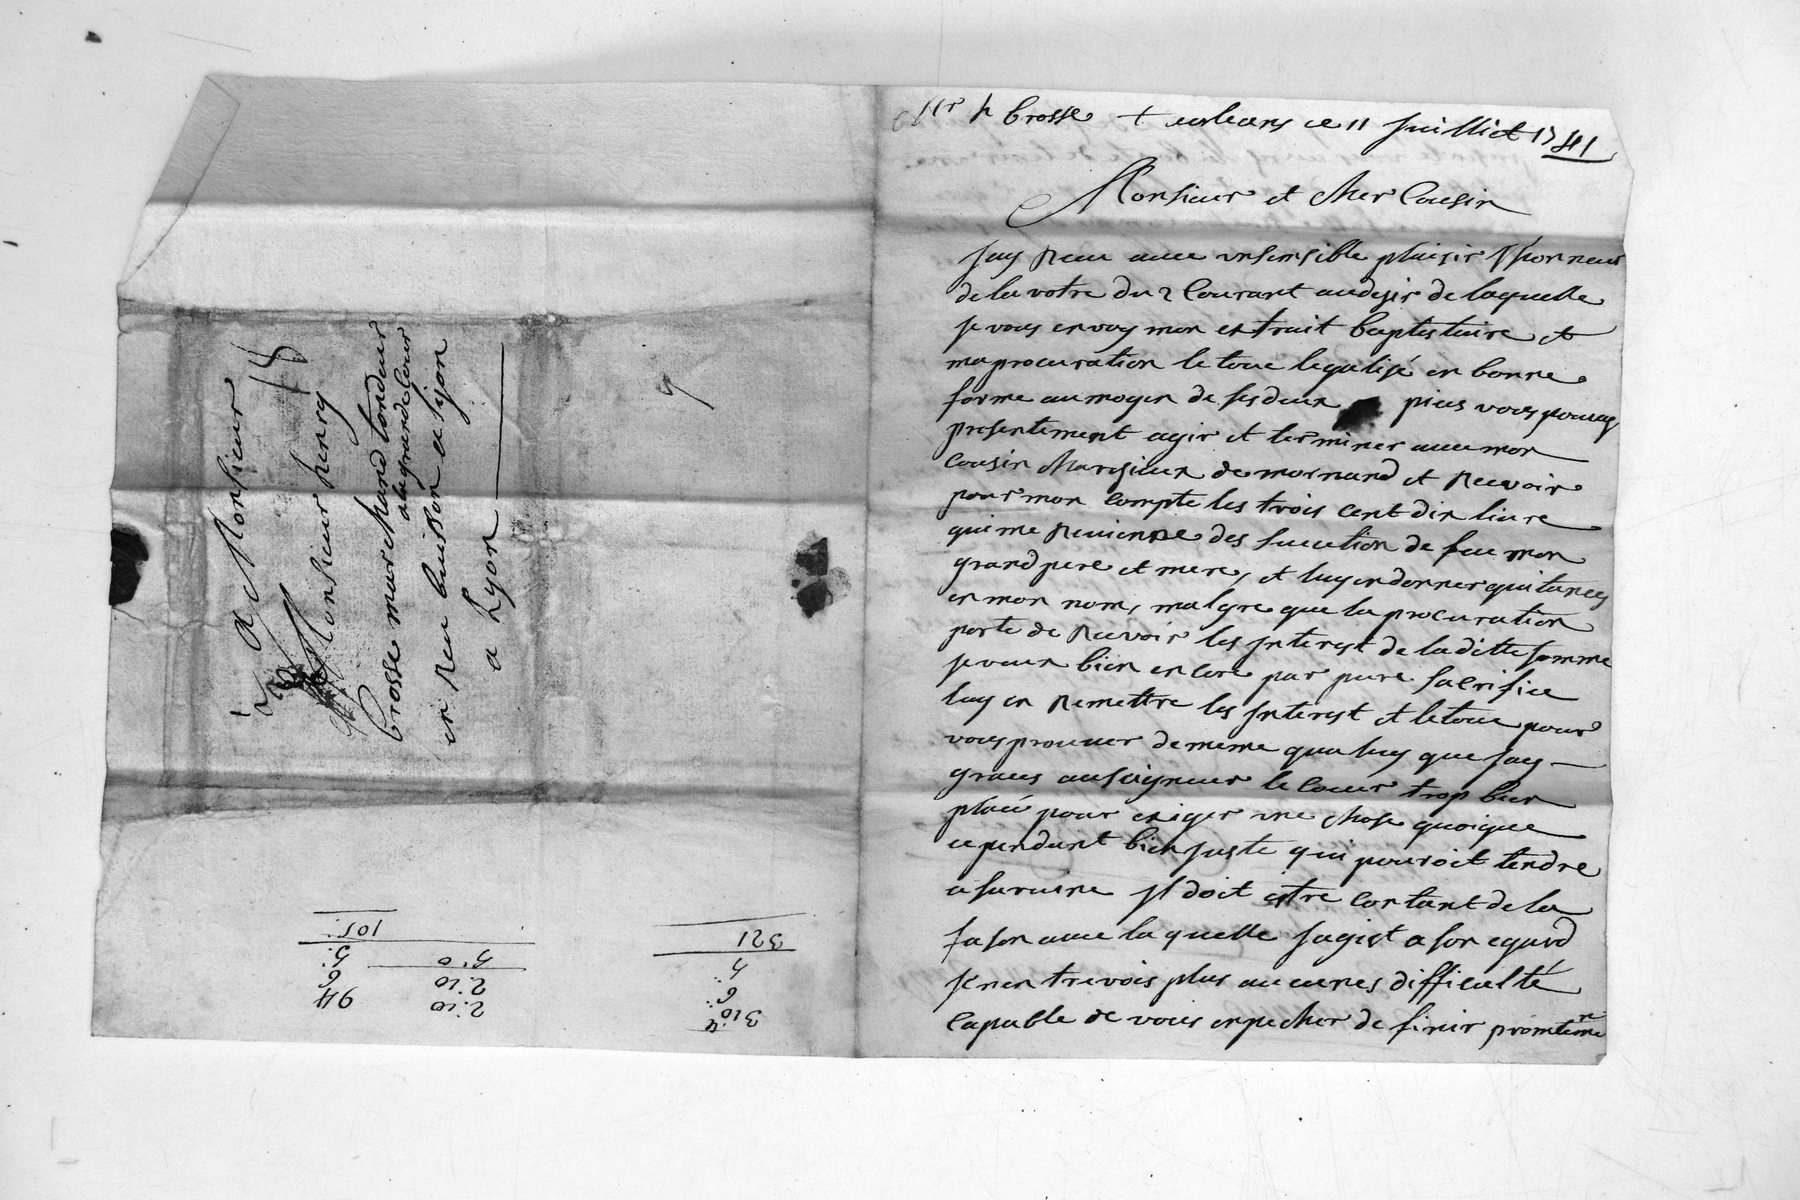 Mr h brosse + orleans ce 11 Juilliet 1741
Monsieur et Cher Cousin
Jay Reeu avec un sensible plaisir lhonneur
de la votre du 2 Courant au desir de laquelle
je vous envoy mon extrait baptistaire et
ma procuration le toue legalisé en bonne
forme au moyen de ses deux pieces vous pouvez
presentement agir et terminer avec mon
Cousin de mornand et Recevoir
pour mon compte les trois cent dix livre
qui me Revienne des sucection de feu mon
grand pere et mere, et luy en donner quitances
en mon nom, malgre que la procuration
porte de Recevoir les Interest de la ditte somme
je veux bien encore par pure sacrifice
luy en Remettre les Interest et le toue pour
vous prouver de meme qua luy que jay
graces au seigneur le coeur trop bien
placé pour exiger une chose quoique
cependant bien juste qui pouroit tendre
a sa ruine Il doit estre contant de la
fason avec la quelle Jagist a son egard
Je nen trevois plus aucunes difficulté
capable de vous enpecher de finir promtement
A Monsieur
Monsieur henry
brosse marchand tondeur
a la grande cour
en Reu buisson a lyon
a Lyon
310:4
6:
4:
321
94
6
5:
105:
2:10
2:10
5:0